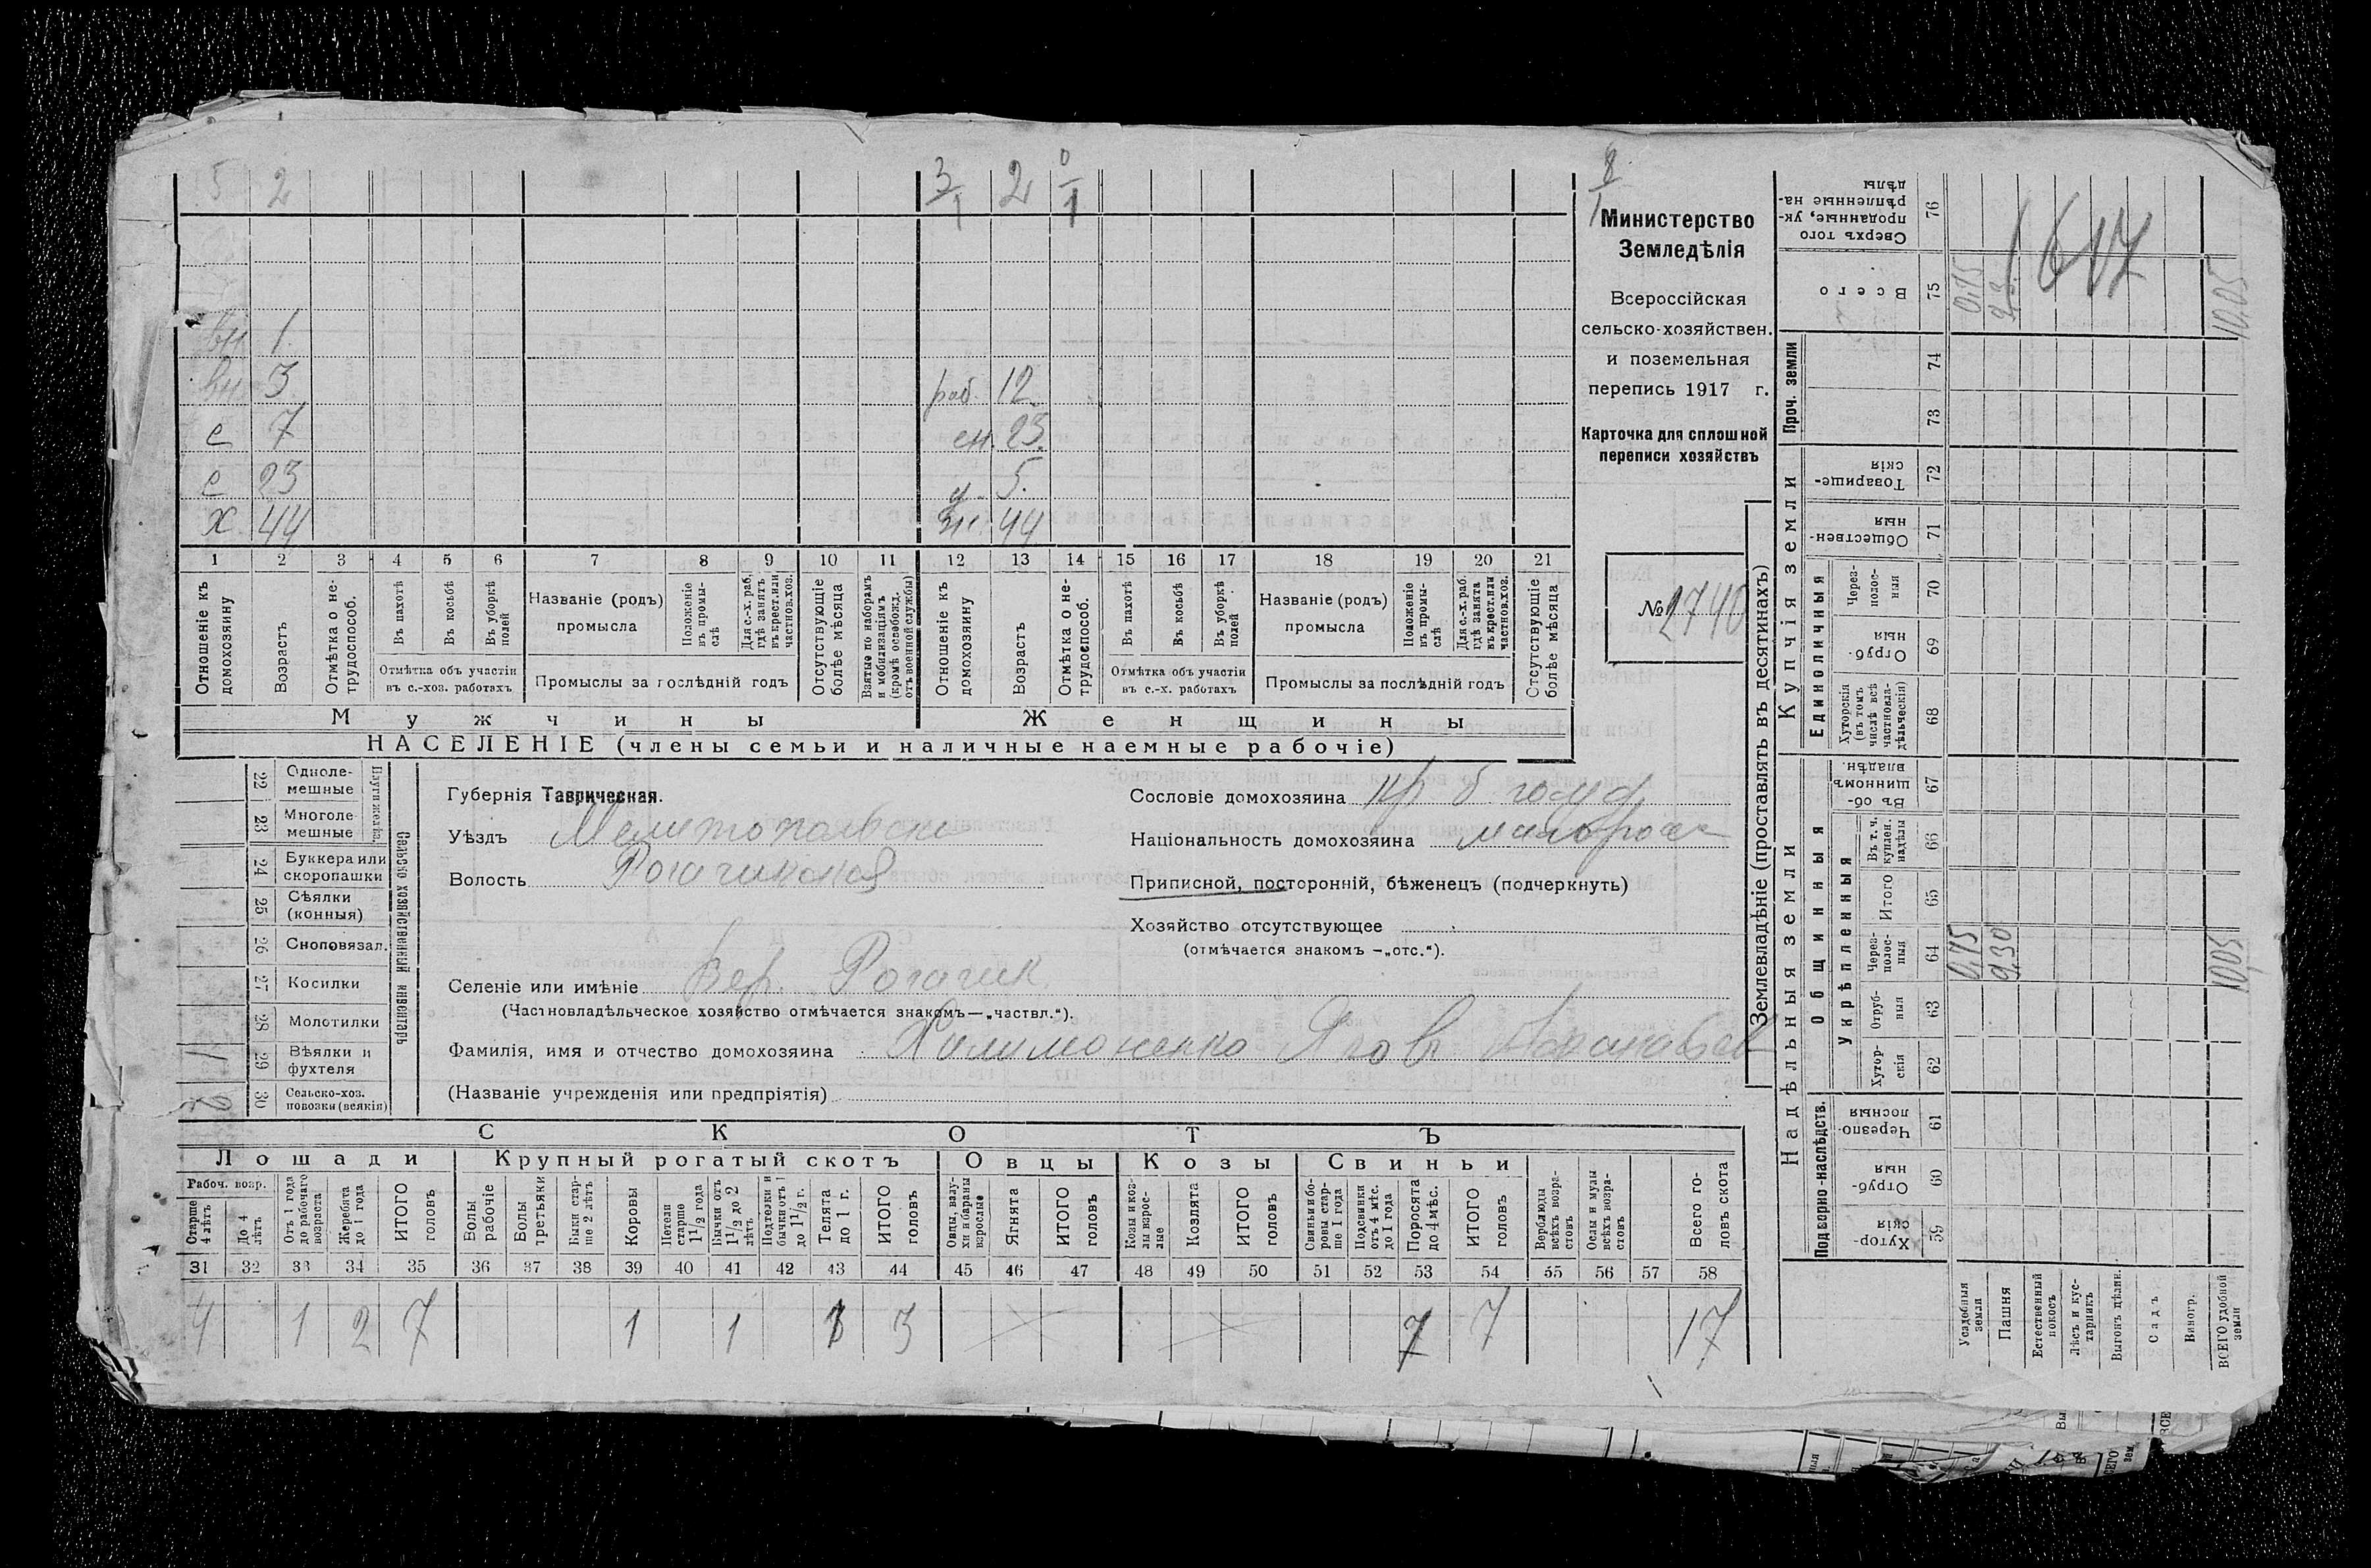 5 2 3/1 2 0/1
8/1
вн 1
вн 3
с 7
с 23
х 44
раб. 12
сн. 23.
д. 5.
ж. 44
1 2 3 4 5 6 7 8 9 10 11 12 13 14 15 16 17 18 19 20 21
Отношеніе къ домохозяину
Возрастъ
Отмѣтка о не-трудоспособ.
Въ пахотѣ
Въ косьбѣ
Въ уборкѣ полей
Отмѣтка объ участіи въ с.-хоз. работахъ
Названіе (родъ) промысла
Положеніе въ промы-слѣ
Для с.-х. раб. гдѣ занятъ въ крест. или частнов. хоз.
Промыслы за послѣдній годъ
Отсутствующіе болѣе мѣсяца
Взятые по наборамъ и мобилизаціямъ (кромѣ освобожд. отъ военной службы)
Отношеніе къ домохозяину
Возрастъ
Отмѣтка о не-трудоспособ.
Въ пахотѣ
Въ косьбѣ
Въ уборкѣ полей
Отмѣтка объ участіи въ с.-х. работахъ
Названіе (родъ) промысла
Положеніе въ промы-слѣ
Для с.-х. раб. гдѣ занята въ крест. или частнов. хоз.
Промыслы за послѣдній годъ
Отсутствующіе болѣе мѣсяца
Мужчины Женщины
НАСЕЛЕНІЕ (члены семьи и наличные наемные рабочіе)
Министерство
Земледѣлія
Всероссійская
сельско-хозяйствен.
и поземельная
перепись 1917 г.
Карточка для сплошной
переписи хозяйствъ
№ 2740
Плуги желѣз.
22 Одноле-мешные
23 Многоле-мешные
24 Буккера или скоропашки
25 Сѣялки (конныя)
26 Сноповязал.
27 Косилки
28 Молотилки
29 Вѣялки и фухтеля 1
30 Сельско-хоз. повозки (всякія) 2
Сельско хозяйственный инвентарь
Губернія Таврическая.
Уѣздъ Мелитопольск
Волость Рогачикская
Селеніе или имѣніе Вер. Рогачик
(Частновладѣльческое хозяйство отмѣчается знакомъ—„частвл.“).
Фамилія, имя и отчество домохозяина Филимоненко Яков
(Названіе учрежденія или предпріятія)
Сословіе домохозяина кр б. госуд
Національность домохозяина малоросс
Приписной, посторонній, бѣженецъ (подчеркнуть)
Хозяйство отсутствующее
(отмѣчается знакомъ —„отс.“).
СКОТЪ
Лошади Крупный рогатый скотъ Овцы Козы Свиньи
Рабоч. возр.
Старше 4 лѣтъ
До 4 лѣтъ
Отъ 1 года до рабочаго возраста
Жеребята до 1 года
ИТОГО головъ
Волы рабочіе
Волы третьяки
Быки стар-ше 2 лѣтъ
Коровы
Нетели старше 1 1/2 года
Бычки отъ 1 1/2 до 2 лѣтъ
Подтелки и бычки отъ 1 до 1 1/2 г.
Телята до 1 г.
ИТОГО головъ
Овцы, валу-хи и бараны взрослые
Ягнята
ИТОГО головъ
Козы и коз-лы взрос-лые
Козлята
ИТОГО головъ
Свиньи и бо-ровы стар-ше 1 года
Подсвинки отъ 4 мѣс. до 1 года
Поросята до 4 мѣс.
ИТОГО головъ
Верблюды всѣхъ возра-стовъ
Ослы и мулы всѣхъ возра-стовъ
Всего го-ловъ скота
31 32 33 34 35 36 37 38 39 40 41 42 43 44 45 46 47 48 49 50 51 52 53 54 55 56 57 58
4 1 2 7 1 1 1 3 7 7 17
Землевладѣніе (проставлять въ десятинахъ)
Надѣльныя земли
Купчія земли
Проч. земли
Подворно-наслѣдств.
Общинныя
Укрѣпленныя
Единоличныя
59 Хутор-скія
60 Отруб-ныя
61 Черезпо-лосныя
62 Хутор-скія
63 Отруб-ныя
64 Через-полос-ныя
65 Итого
66 Въ т. ч. купчен. надѣлы
67 Въ об-щинномъ владѣн.
68 Хуторскія (въ томъ числѣ всѣ частновла-дѣльческія)
69 Отруб-ныя
70 Через-полос-ныя
71 Обществен-ныя
72 Товарище-скія
73
74
75 Всего
76 Сверхъ того проданные, ук-рѣпленные на-дѣлы
Усадебныя земли
Пашня
Естественный покосъ
Лѣсъ и кус-тарникъ
Выгонъ цѣлин.
Садъ
Виногр.
ВСЕГО удобной земли
0,75 9,30 10,05
0,75 9,3 10,05
1617